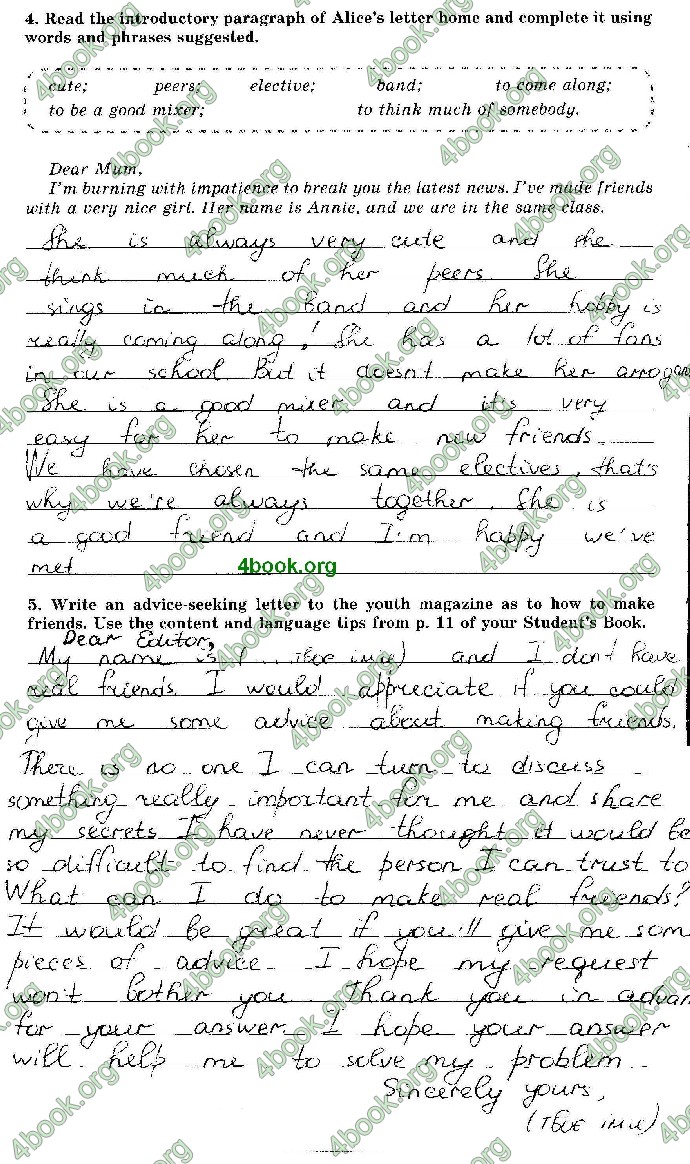 4. Read the introductory paragraph of Alice's letter home and complete it using
words and phrases suggested.
cute; peers; elective; band; to come along;
to be a good mixer; to think much of somebody.
Dear Mum,
I'm burning with impatience to break you the latest news. I've made friends
with a very nice girl. Her name is Annie, and we are in the same class.
She is always very cute and she
think much of her peers. She
sings in the band and her hobby is
really coming along! She has a lot of fans
in our school. But it doesn't make her arrogan
She is a good mixer and it's very
easy for her to make new friends.
We have chosen the same electives, that's
why we're always together. She is
a good friend and I'm happy we've
met
4book.org
5. Write an advice-seeking letter to the youth magazine as to how to make
friends. Use the content and language tips from p. 11 of your Student's Book.
Dear Editor,
My name is (... твоє ім'я) and I don't have
real friends. I would appreciate if you could
give me some advice about making friends.
There is no one I can turn to discuss
something really important for me and share
my secrets. I have never thought it would be
so difficult to find the person I can trust to
What can I do to make real friends?
It would be great if you'll give me som
pieces of advice. I hope my request
won't bother you. Thank you in advan
for your answer. I hope your answer
will help me to solve my problem.
Sincerely yours,
(твоє ім'я)